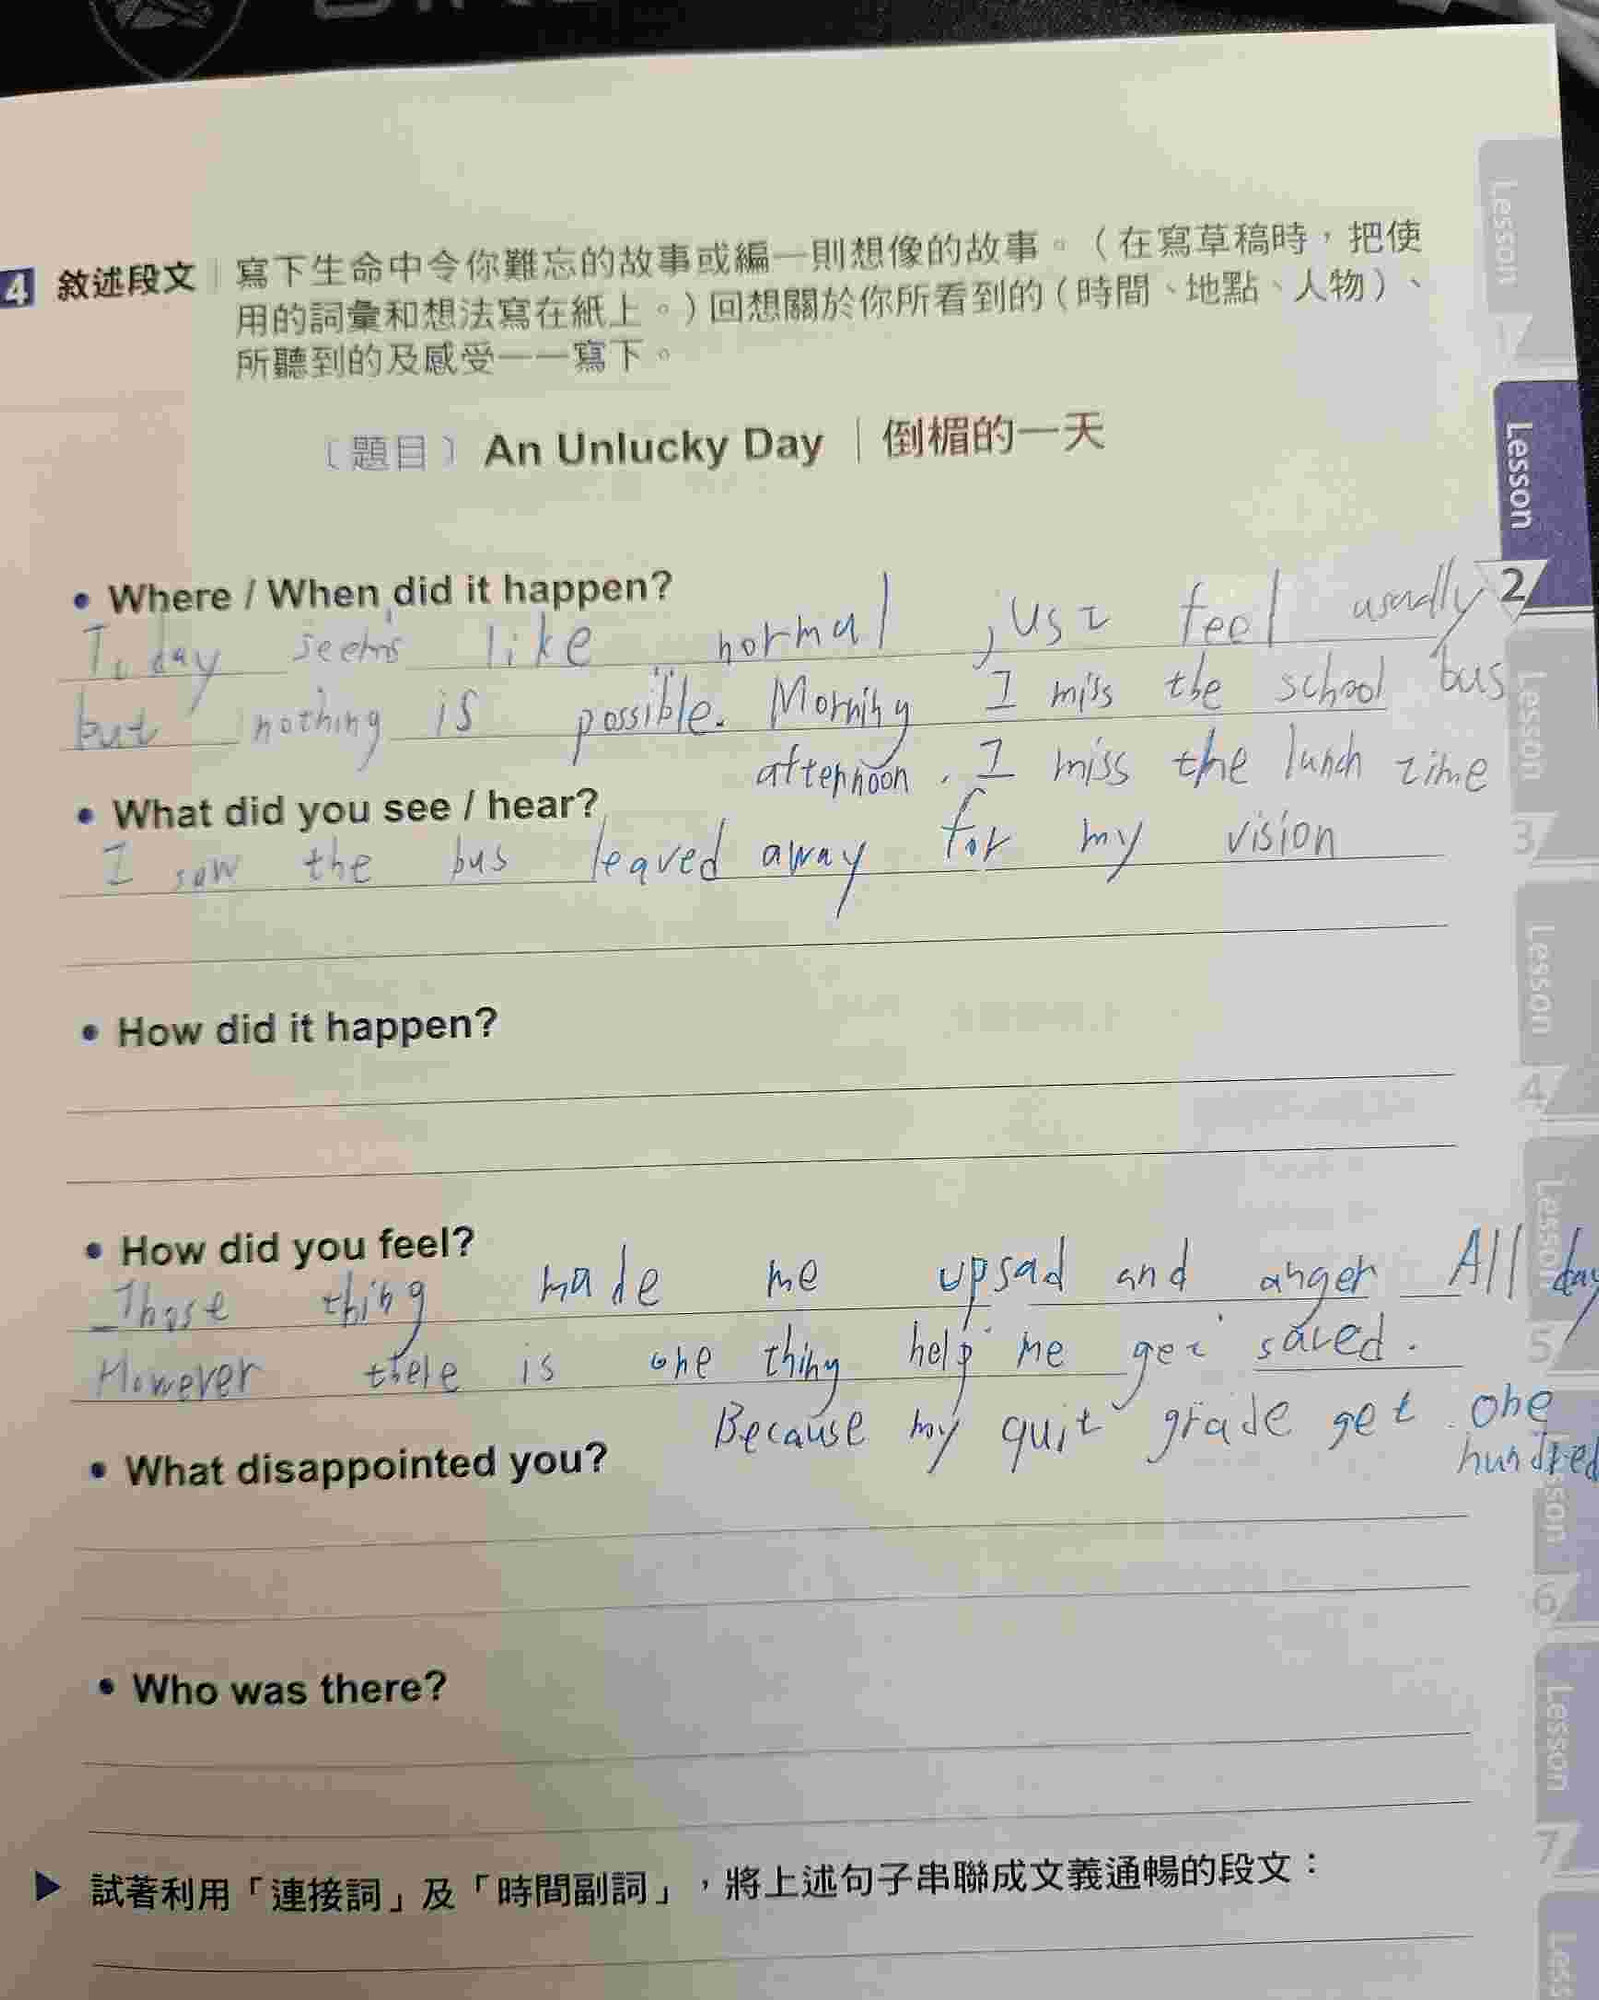 4 敘述段文 寫下生命中令你難忘的故事或編一則想像的故事。（在寫草稿時，把使
用的詞彙和想法寫在紙上。）回想關於你所看到的（時間、地點、人物）、
所聽到的及感受一一寫下。
〔題目〕 An Unlucky Day 倒楣的一天
• Where / When did it happen?
Today seems like normal just feel usually
but nothing is possible. Morning I miss the school bus
afternoon. I miss the lunch time
• What did you see / hear?
I saw the bus leaved away for my vision
• How did it happen?
• How did you feel?
Those thing made me upsad and anger All day
However there is one thing help me get saved.
Because my quit grade get one
hundred
• What disappointed you?
• Who was there?
▶ 試著利用「連接詞」及「時間副詞」，將上述句子串聯成文義通暢的段文：
Lesson
1
Lesson
2
Lesson
3
Lesson
4
Lesson
5
Lesson
6
Lesson
7
Less